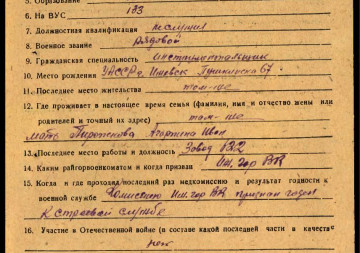 5. Образование
6. На ВУС 133
7. Должностная квалификация
8. Военное звание рядовой
9. Гражданская специальность инструментальщик
10. Место рождения УАССР г. Ижевск Пушкинская 67
11. Последнее место жительства там-же
12. Где проживает в настоящее время семья (фамилия, имя и отчество жены или
родителей и точный их адрес) там-же
мать
13. Последнее место работы и должность Завод
14. Каким райгорвоенкоматом и когда призван Иж. гор ВК
15. Когда и где проходил последний раз медкомиссию и результат годности к
военной службе Комиссию Иж. гор ВК признан годен
к строевой службе
16. Участие в Отечественной войне (в составе какой последней части и в качестве
нет